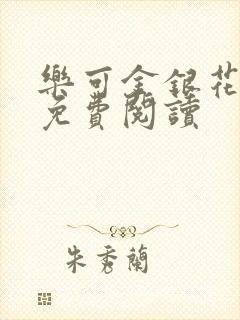 樂可金銀花
免費閱讀
朱秀蘭